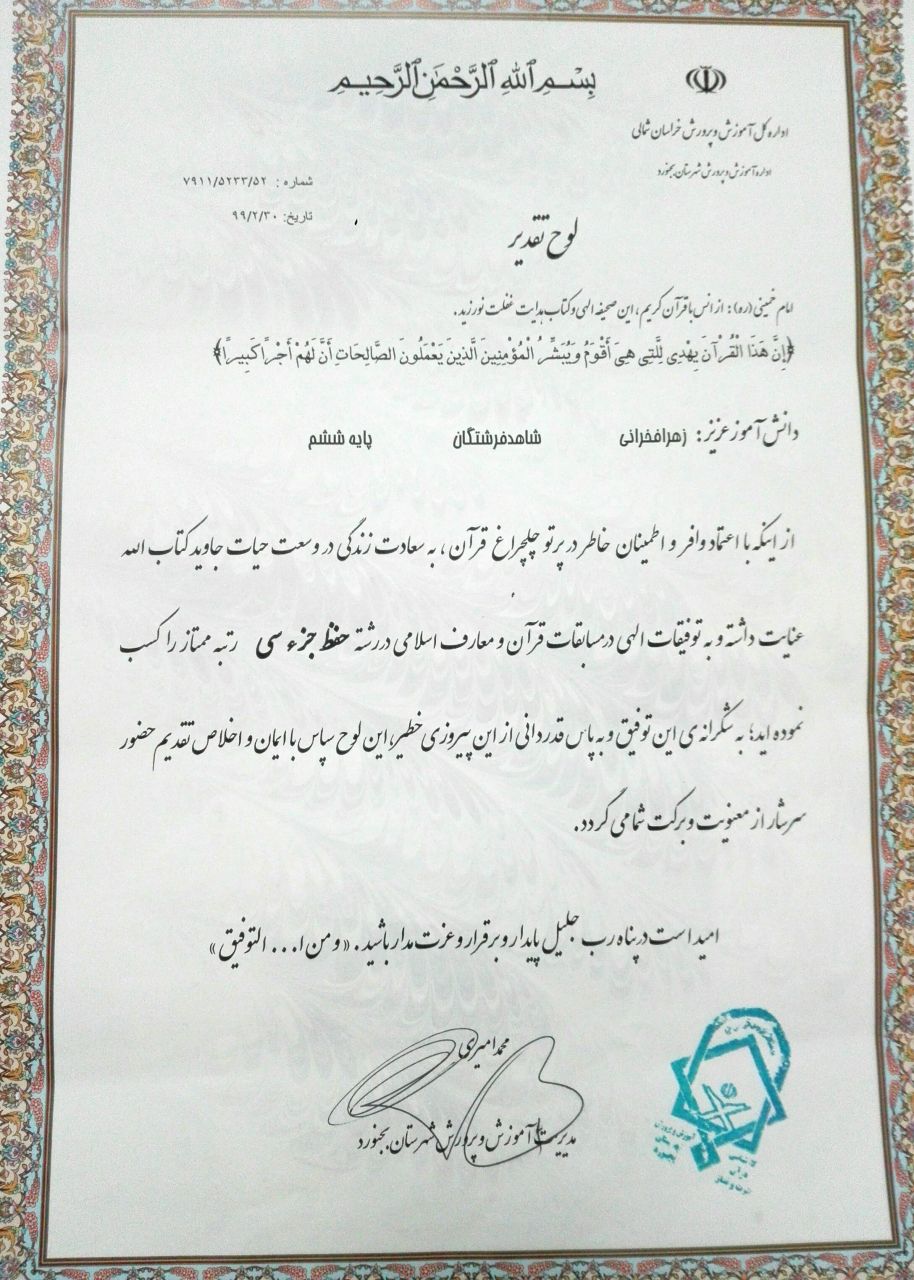 بِسْمِ ٱللهِ ٱلرَّحْمٰنِ ٱلرَّحِيمِ
اداره کل آموزش و پرورش خراسان شمالی
اداره آموزش و پرورش شهرستان بجنورد
شماره : ۷۹۱۱/۵۲۳۳/۵۲
تاریخ: ۹۹/۲/۳۰
لوح تقدیر
امام خمینی (ره): از انس با قرآن کریم، این صحیفه الهی و کتاب هدایت غفلت نورزید.
﴿إِنَّ هَذَا الْقُرْآنَ يِهْدِي لِلَّتِي هِيَ أَقْوَمُ وَيُبَشِّرُ الْمُؤْمِنِينَ الَّذِينَ يَعْمَلُونَ الصَّالِحَاتِ أَنَّ لَهُمْ أَجْرًا كَبِيرًا﴾
دانش آموز عزیز: زهرا فخرانی شاهد فرشتگان پایه ششم
از اینکه با اعتماد وافر و اطمینان خاطر در پرتو چلچراغ قرآن، به سعادت زندگی در وسعت حیات جاوید کتاب الله
عنایت داشته و به توفیقات الهی در مسابقات قرآن و معارف اسلامی در رشته حفظ جزء سی رتبه ممتاز را کسب
نموده اید؛ به شکرانه ی این توفیق و به پاس قدردانی از این پیروزی خطیر، این لوح سپاس با ایمان و اخلاص تقدیم حضور
سرشار از معنویت و برکت شما می گردد.
امید است در پناه رب جلیل پایدار و برقرار و عزت مدار باشید. «و من ا... التوفیق»
محمد امیری
مدیریت آموزش و پرورش شهرستان بجنورد